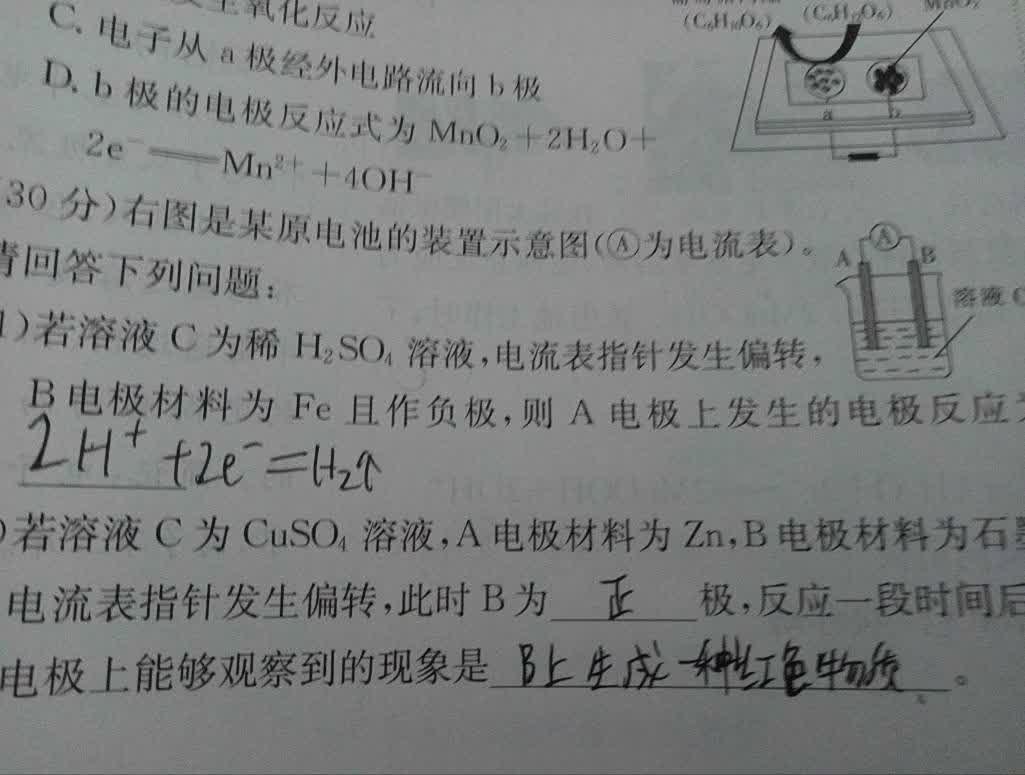 氧化反应
C. 电子从 a 极经外电路流向 b 极
D. b 极的电极反应式为 MnO₂+2H₂O+
2e⁻══Mn²⁺+4OH⁻
(C₆H₁₀O₆) (C₆H₁₂O₆) MnO₂
a b
30 分)右图是某原电池的装置示意图(Ⓐ为电流表)。
请回答下列问题:
A Ⓐ B
溶液 C
1)若溶液 C 为稀 H₂SO₄ 溶液,电流表指针发生偏转,
B 电极材料为 Fe 且作负极,则 A 电极上发生的电极反应为
2H⁺+2e⁻=H₂↑
)若溶液 C 为 CuSO₄ 溶液,A 电极材料为 Zn,B 电极材料为石墨
电流表指针发生偏转,此时 B 为 正 极,反应一段时间后
电极上能够观察到的现象是 B上生成一种红色物质 。